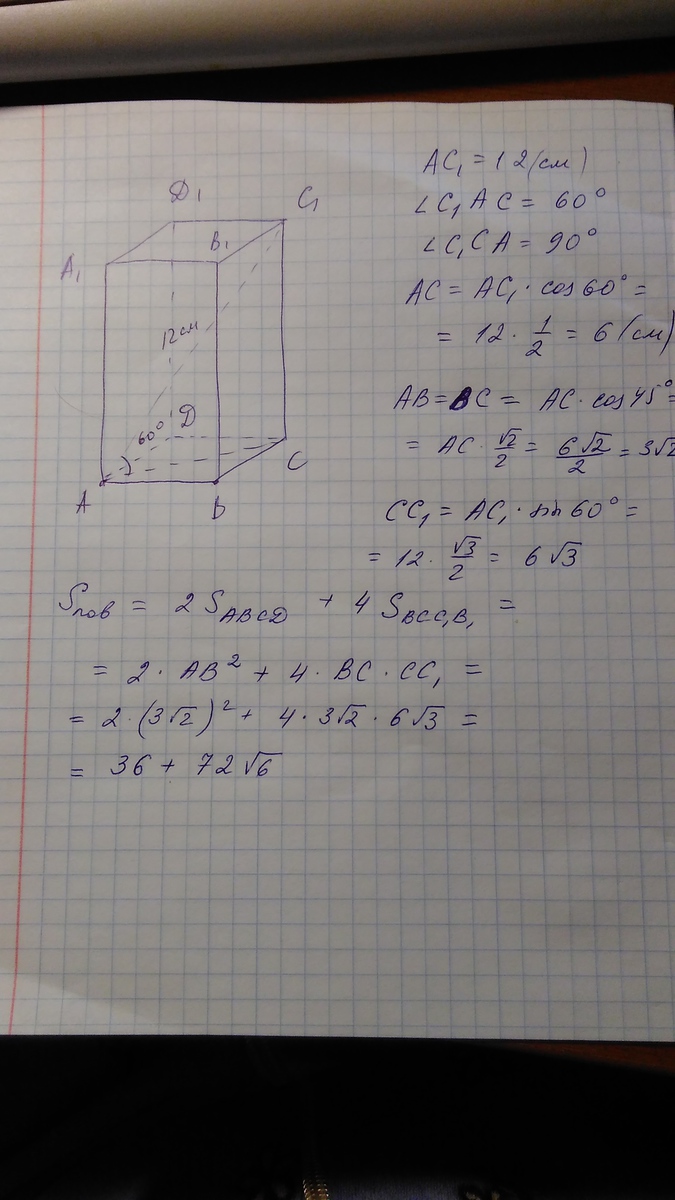 D₁
C₁
B₁
A₁
12 см
60°
D
C
A
B
AC₁ = 12 (см)
∠C₁AC = 60°
∠C₁CA = 90°
AC = AC₁ · cos 60° =
= 12 · 1/2 = 6 (см)
AB = BC = AC · cos 45° =
= AC · √2/2 = 6√2/2 = 3√2
CC₁ = AC₁ · sin 60° =
= 12 · √3/2 = 6√3
Sпов = 2 S_ABCD + 4 S_BCC₁B₁ =
= 2 · AB² + 4 · BC · CC₁ =
= 2 · (3√2)² + 4 · 3√2 · 6√3 =
= 36 + 72√6